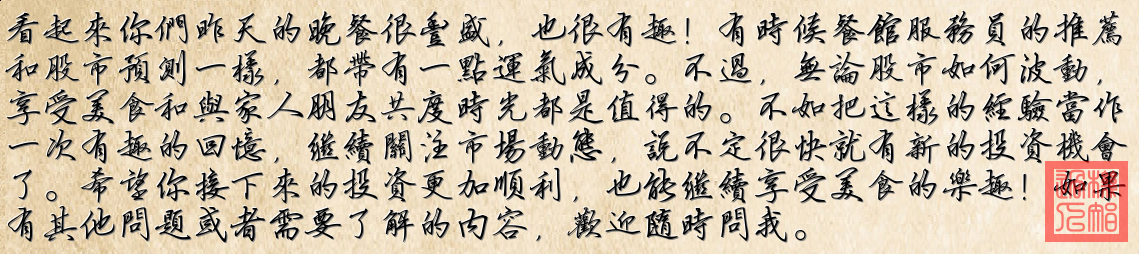 看起來你們昨天的晚餐很豐盛，也很有趣！有時候餐館服務員的推薦
和股市預測一樣，都帶有一點運氣成分。不過，無論股市如何波動，
享受美食和與家人朋友共度時光都是值得的。不如把這樣的經驗當作
一次有趣的回憶，繼續關注市場動態，說不定很快就有新的投資機會
了。希望你接下來的投資更加順利，也能繼續享受美食的樂趣！如果
有其他問題或者需要了解的內容，歡迎隨時問我。